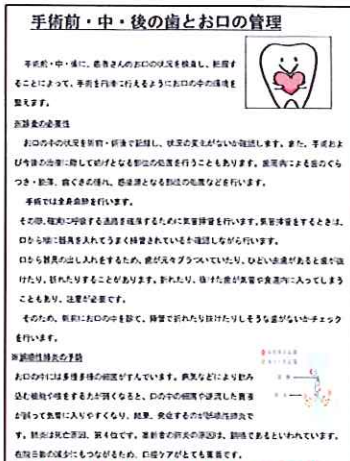 手術前・中・後の歯とお口の管理
手術前・中・後に、患者さんのお口の状況を検査し、把握す
ることによって、手術を円滑に行えるようにお口の中の環境を
整えます。
※検査の必要性
お口の中の状況を術前・術後で記録し、状況の変化がないか確認します。また、手術およ
び今後の治療に際して妨げとなる部位の処置を行うこともあります。歯周病による歯のぐら
つき・動揺、歯ぐきの腫れ、感染源となる部位の処置などを行います。
手術では全身麻酔を行います。
その際、確実に呼吸する通路を確保するために気管挿管を行います。気管挿管をするときは、
口から喉に器具を入れてうまく挿管されているか確認しながら行います。
口から器具の出し入れをするため、歯が元々グラついていたり、ひどい虫歯があると歯が抜
けたり、折れたりすることがあります。折れたり、抜けた歯が気管や食道内に入ってしまう
こともあり、注意が必要です。
そのため、術前にお口の中を診て、挿管で折れたり抜けたりしそうな歯がないかチェック
を行います。
※誤嚥性肺炎の予防
お口の中には多種多様の細菌がすんでいます。病気などにより飲み
込む機能や咳をする力が弱くなると、口の中の細菌や逆流した胃液
が誤って気管に入りやすくなり、結果、発症するのが誤嚥性肺炎で
す。肺炎は死亡原因、第4位です。高齢者の肺炎の原因は、誤嚥であるといわれています。
在院日数の減少にもつながるため、口腔ケアがとても重要です。